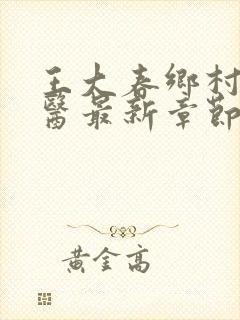 王大春鄉村
醫最新章節
黃金高